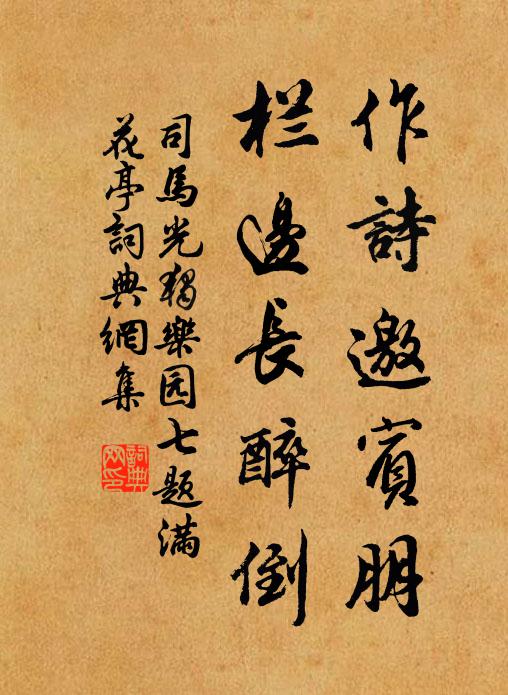 作詩邀賓朋
栏邊長醉倒
司馬光獨樂园七題滿
花亭詞典網集
詞典网印